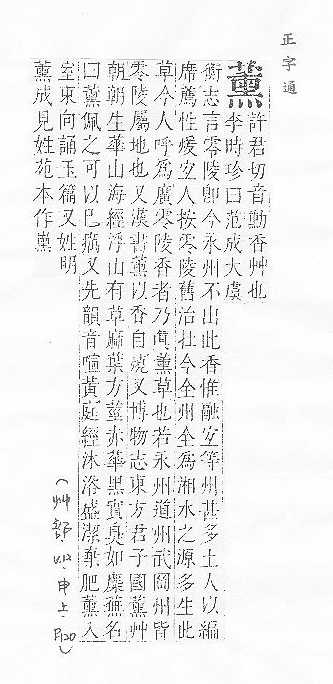 正字通
薰
許君切音勳香艸也
李時珍曰范成大虞
衡志言零陵卽今永州不出此香惟融宜等州甚多土人以編
席薦性煖宜人按零陵舊治在今全州全爲湘水之源多生此
草今人呼爲廣零陵香者乃眞薰草也若永州道州武岡州皆
零陵屬地也又漢書薰以香自燒又博物志東方君子國薰艸
朝朝生華山海經浮山有草麻葉方莖赤華黑實臭如蘪蕪名
曰薰佩之可以已癘又先韻音喧黃庭經沐浴盛潔棄肥薰入
室東向誦玉篇又姓明
薰成見姓苑本作薰
(艸部 V.12,申上,P.120)